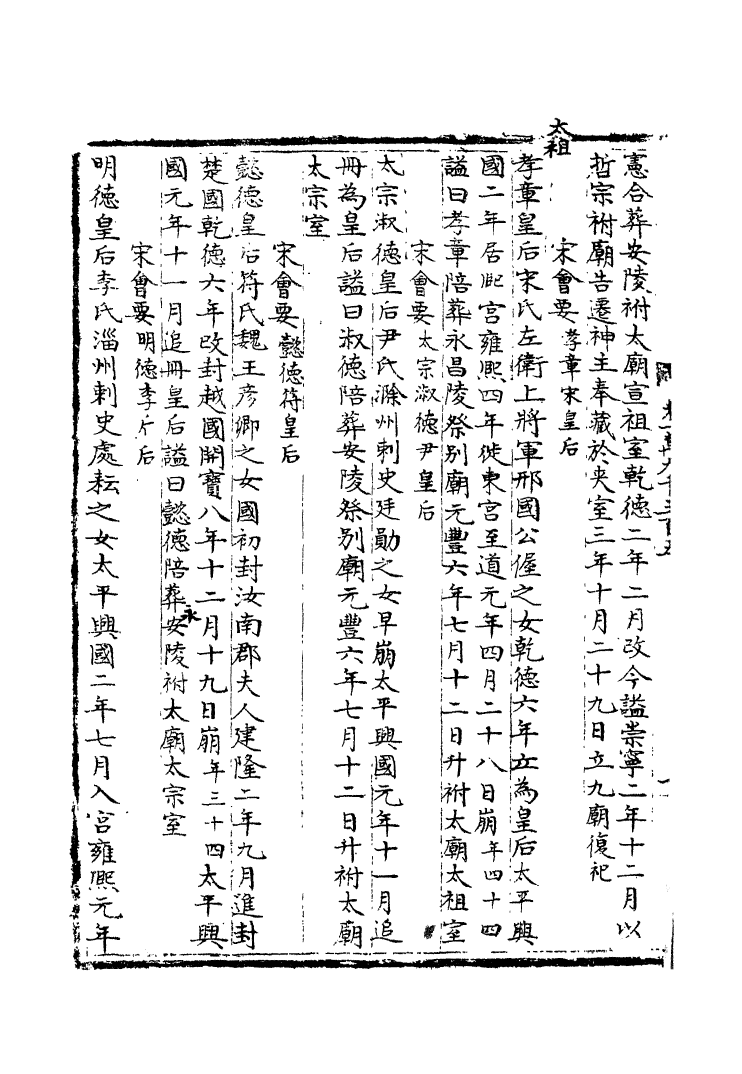 憲合葬安陵祔太廟宣祖室乾德二年二月改今謚崇寧二年十二月以
哲宗祔廟告遷神主奉藏於夾室三年十月二十九日立九廟復祀
太祖
宋會要 孝章宋皇后
孝章皇后宋氏左衛上將軍邢國公偓之女乾德六年立為皇后太平興
國二年居熙宮雍熙四年徙東宮至道元年四月二十八日崩年四十四
謚曰孝章陪葬永昌陵祭别廟元豐六年七月十二日升祔太廟太祖室
宋會要 太宗淑德尹皇后
太宗淑德皇后尹氏滁州刺史廷勛之女早崩太平興國元年十一月追
冊為皇后謚曰淑德陪葬安陵祭别廟元豐六年七月十二日升祔太廟
太宗室
宋會要 懿德符皇后
懿德皇后符氏魏王彦卿之女國初封汝南郡夫人建隆二年九月進封
楚國乾德六年改封越國開寶八年十二月十九日崩年三十四太平興
國元年十一月追冊皇后謚曰懿德陪葬永安陵祔太廟太宗室
宋會要 明德李皇后
明德皇后李氏淄州刺史處耘之女太平興國二年七月入宮雍熙元年